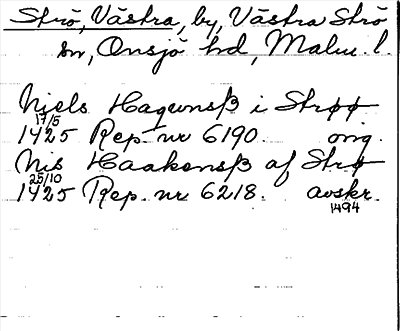 Strö, Västra, by, Västra Strö
sn, Onsjö hd, Malm. l.
Niels Hagunsß i Strøø
17/5
1425 Rep. nr 6190. orig.
Nis Haakonsß af Strø
25/10
1425 Rep. nr 6218. avskr.
1494